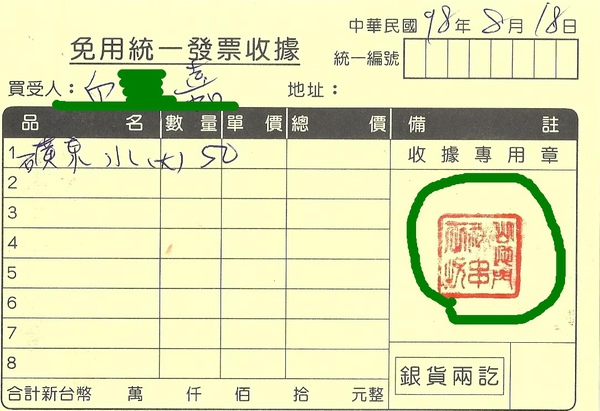 中華民國 98 年 8 月 18 日
免用統一發票收據
統一編號
買受人：
地址：
品 名 數 量 單 價 總 價 備 註
1 礦泉水(大) 50 收據專用章
2
3
4
5
6
7
8
銀貨兩訖
合計新台幣 萬 仟 佰 拾 元整